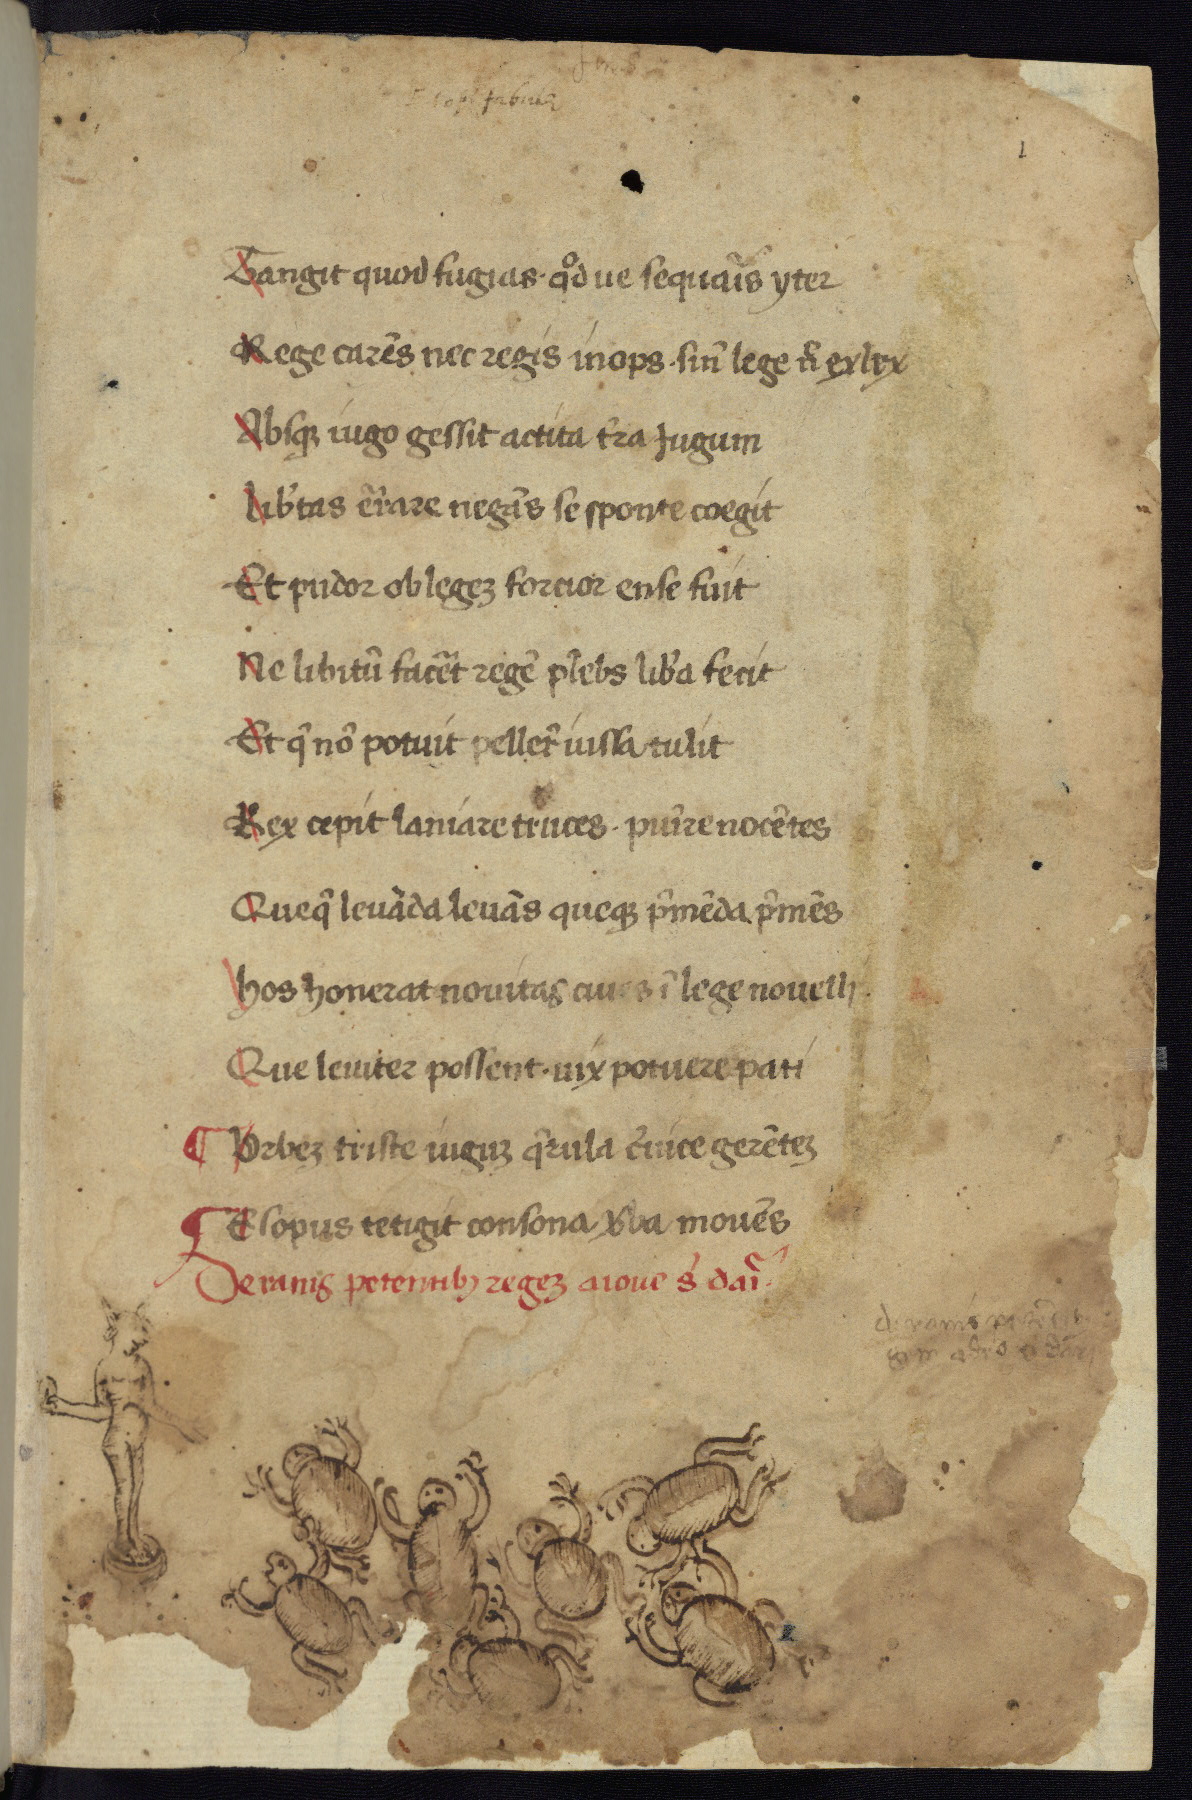 fabula
1
Tangit quod fugias · qͦd ue sequar̄s yter
Rege carēs nec regis inops · sin̄ lege n̄ exlex
Absqꝫ iugo gessit actita t̄ra Jugum
lib̄tas er̄rare negās se sponte coegit
Et pudor ob legeꝫ forcior ense fuit
Ne libitū facēt regē plebs lib̄a fecit
Et q̄ nō potuit peller̄ iussa tulit
Rex cepit laniare truces · pun̄re nocētes
Queq̄ leuāda leuās queqꝫ p̄mēda p̄mēs
hos honerat nouitas ciues ī lege nouelli
Que leuiter possent · uix potuere pati
¶ Vrbeꝫ triste iuguꝫ q̄rula c̄uice gerēteꝫ
¶ Esopus tetigit consona v̄ba mouēs
De ranis petentibꝫ regeꝫ a ioue s̄ dar̄i
de ranis